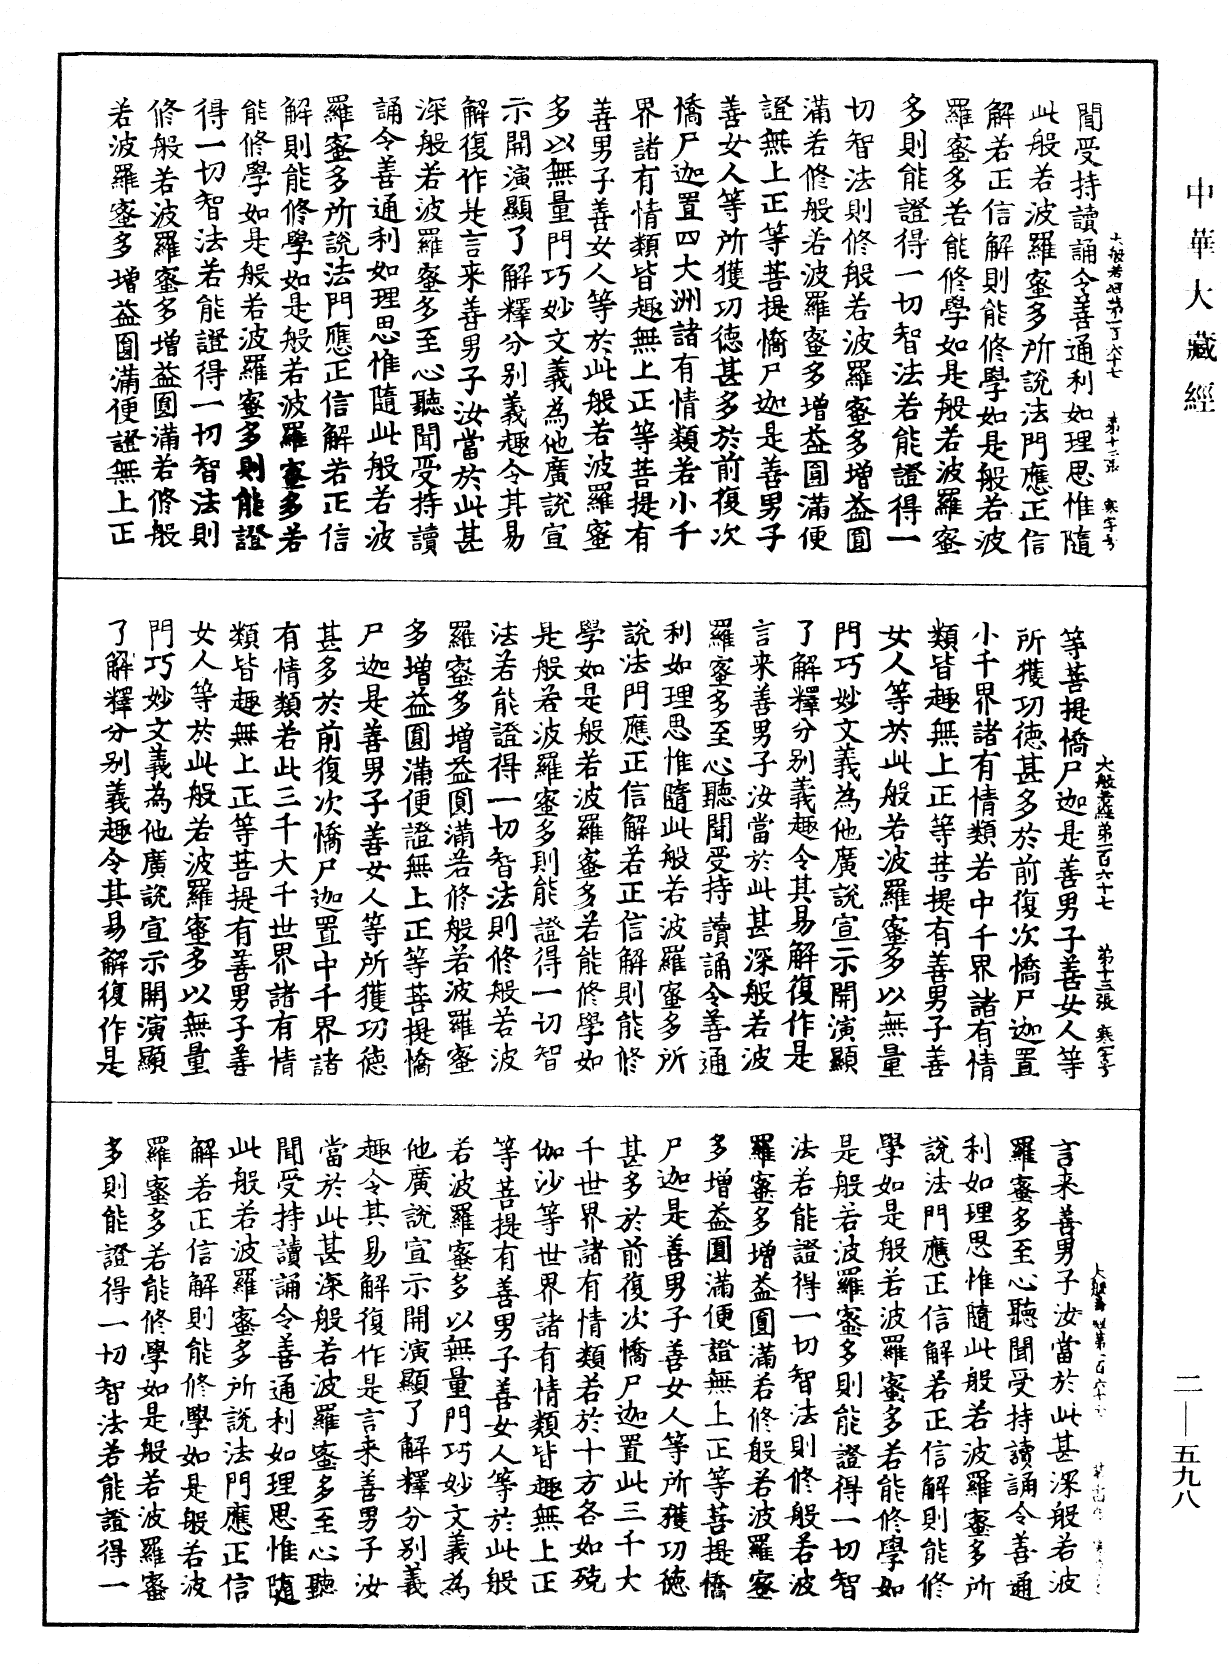 中華大藏經
大般若經第一百六十七 第十二張 寒字号
聞受持讀誦令善通利如理思惟隨
此般若波羅蜜多所說法門應正信
解若正信解則能修學如是般若波
羅蜜多若能修學如是般若波羅蜜
多則能證得一切智法若能證得一
切智法則修般若波羅蜜多增益圓
滿若修般若波羅蜜多增益圓滿便
證無上正等菩提憍尸迦是善男子
善女人等所獲功德甚多於前復次
憍尸迦置四大洲諸有情類若小千
界諸有情類皆趣無上正等菩提有
善男子善女人等於此般若波羅蜜
多以無量門巧妙文義為他廣說宣
示開演顯了解釋分別義趣令其易
解復作是言来善男子汝當於此甚
深般若波羅蜜多至心聽聞受持讀
誦令善通利如理思惟隨此般若波
羅蜜多所說法門應正信解若正信
解則能修學如是般若波羅蜜多若
能修學如是般若波羅蜜多則能證
得一切智法若能證得一切智法則
修般若波羅蜜多增益圓滿若修般
若波羅蜜多增益圓滿便證無上正
大般若經第一百六十七 第十三張 寒字号
等菩提憍尸迦是善男子善女人等
所獲功德甚多於前復次憍尸迦置
小千界諸有情類若中千界諸有情
類皆趣無上正等菩提有善男子善
女人等於此般若波羅蜜多以無量
門巧妙文義為他廣說宣示開演顯
了解釋分別義趣令其易解復作是
言来善男子汝當於此甚深般若波
羅蜜多至心聽聞受持讀誦令善通
利如理思惟隨此般若波羅蜜多所
說法門應正信解若正信解則能修
學如是般若波羅蜜多若能修學如
是般若波羅蜜多則能證得一切智
法若能證得一切智法則修般若波
羅蜜多增益圓滿若修般若波羅蜜
多增益圓滿便證無上正等菩提憍
尸迦是善男子善女人等所獲功德
甚多於前復次憍尸迦置中千界諸
有情類若此三千大千世界諸有情
類皆趣無上正等菩提有善男子善
女人等於此般若波羅蜜多以無量
門巧妙文義為他廣說宣示開演顯
了解釋分別義趣令其易解復作是
大般若經第一百六十七
言来善男子汝當於此甚深般若波
羅蜜多至心聽聞受持讀誦令善通
利如理思惟隨此般若波羅蜜多所
說法門應正信解若正信解則能修
學如是般若波羅蜜多若能修學如
是般若波羅蜜多則能證得一切智
法若能證得一切智法則修般若波
羅蜜多增益圓滿若修般若波羅蜜
多增益圓滿便證無上正等菩提憍
尸迦是善男子善女人等所獲功德
甚多於前復次憍尸迦置此三千大
千世界諸有情類若於十方各如殑
伽沙等世界諸有情類皆趣無上正
等菩提有善男子善女人等於此般
若波羅蜜多以無量門巧妙文義為
他廣說宣示開演顯了解釋分別義
趣令其易解復作是言来善男子汝
當於此甚深般若波羅蜜多至心聽
聞受持讀誦令善通利如理思惟隨
此般若波羅蜜多所說法門應正信
解若正信解則能修學如是般若波
羅蜜多若能修學如是般若波羅蜜
多則能證得一切智法若能證得一
二—五九八